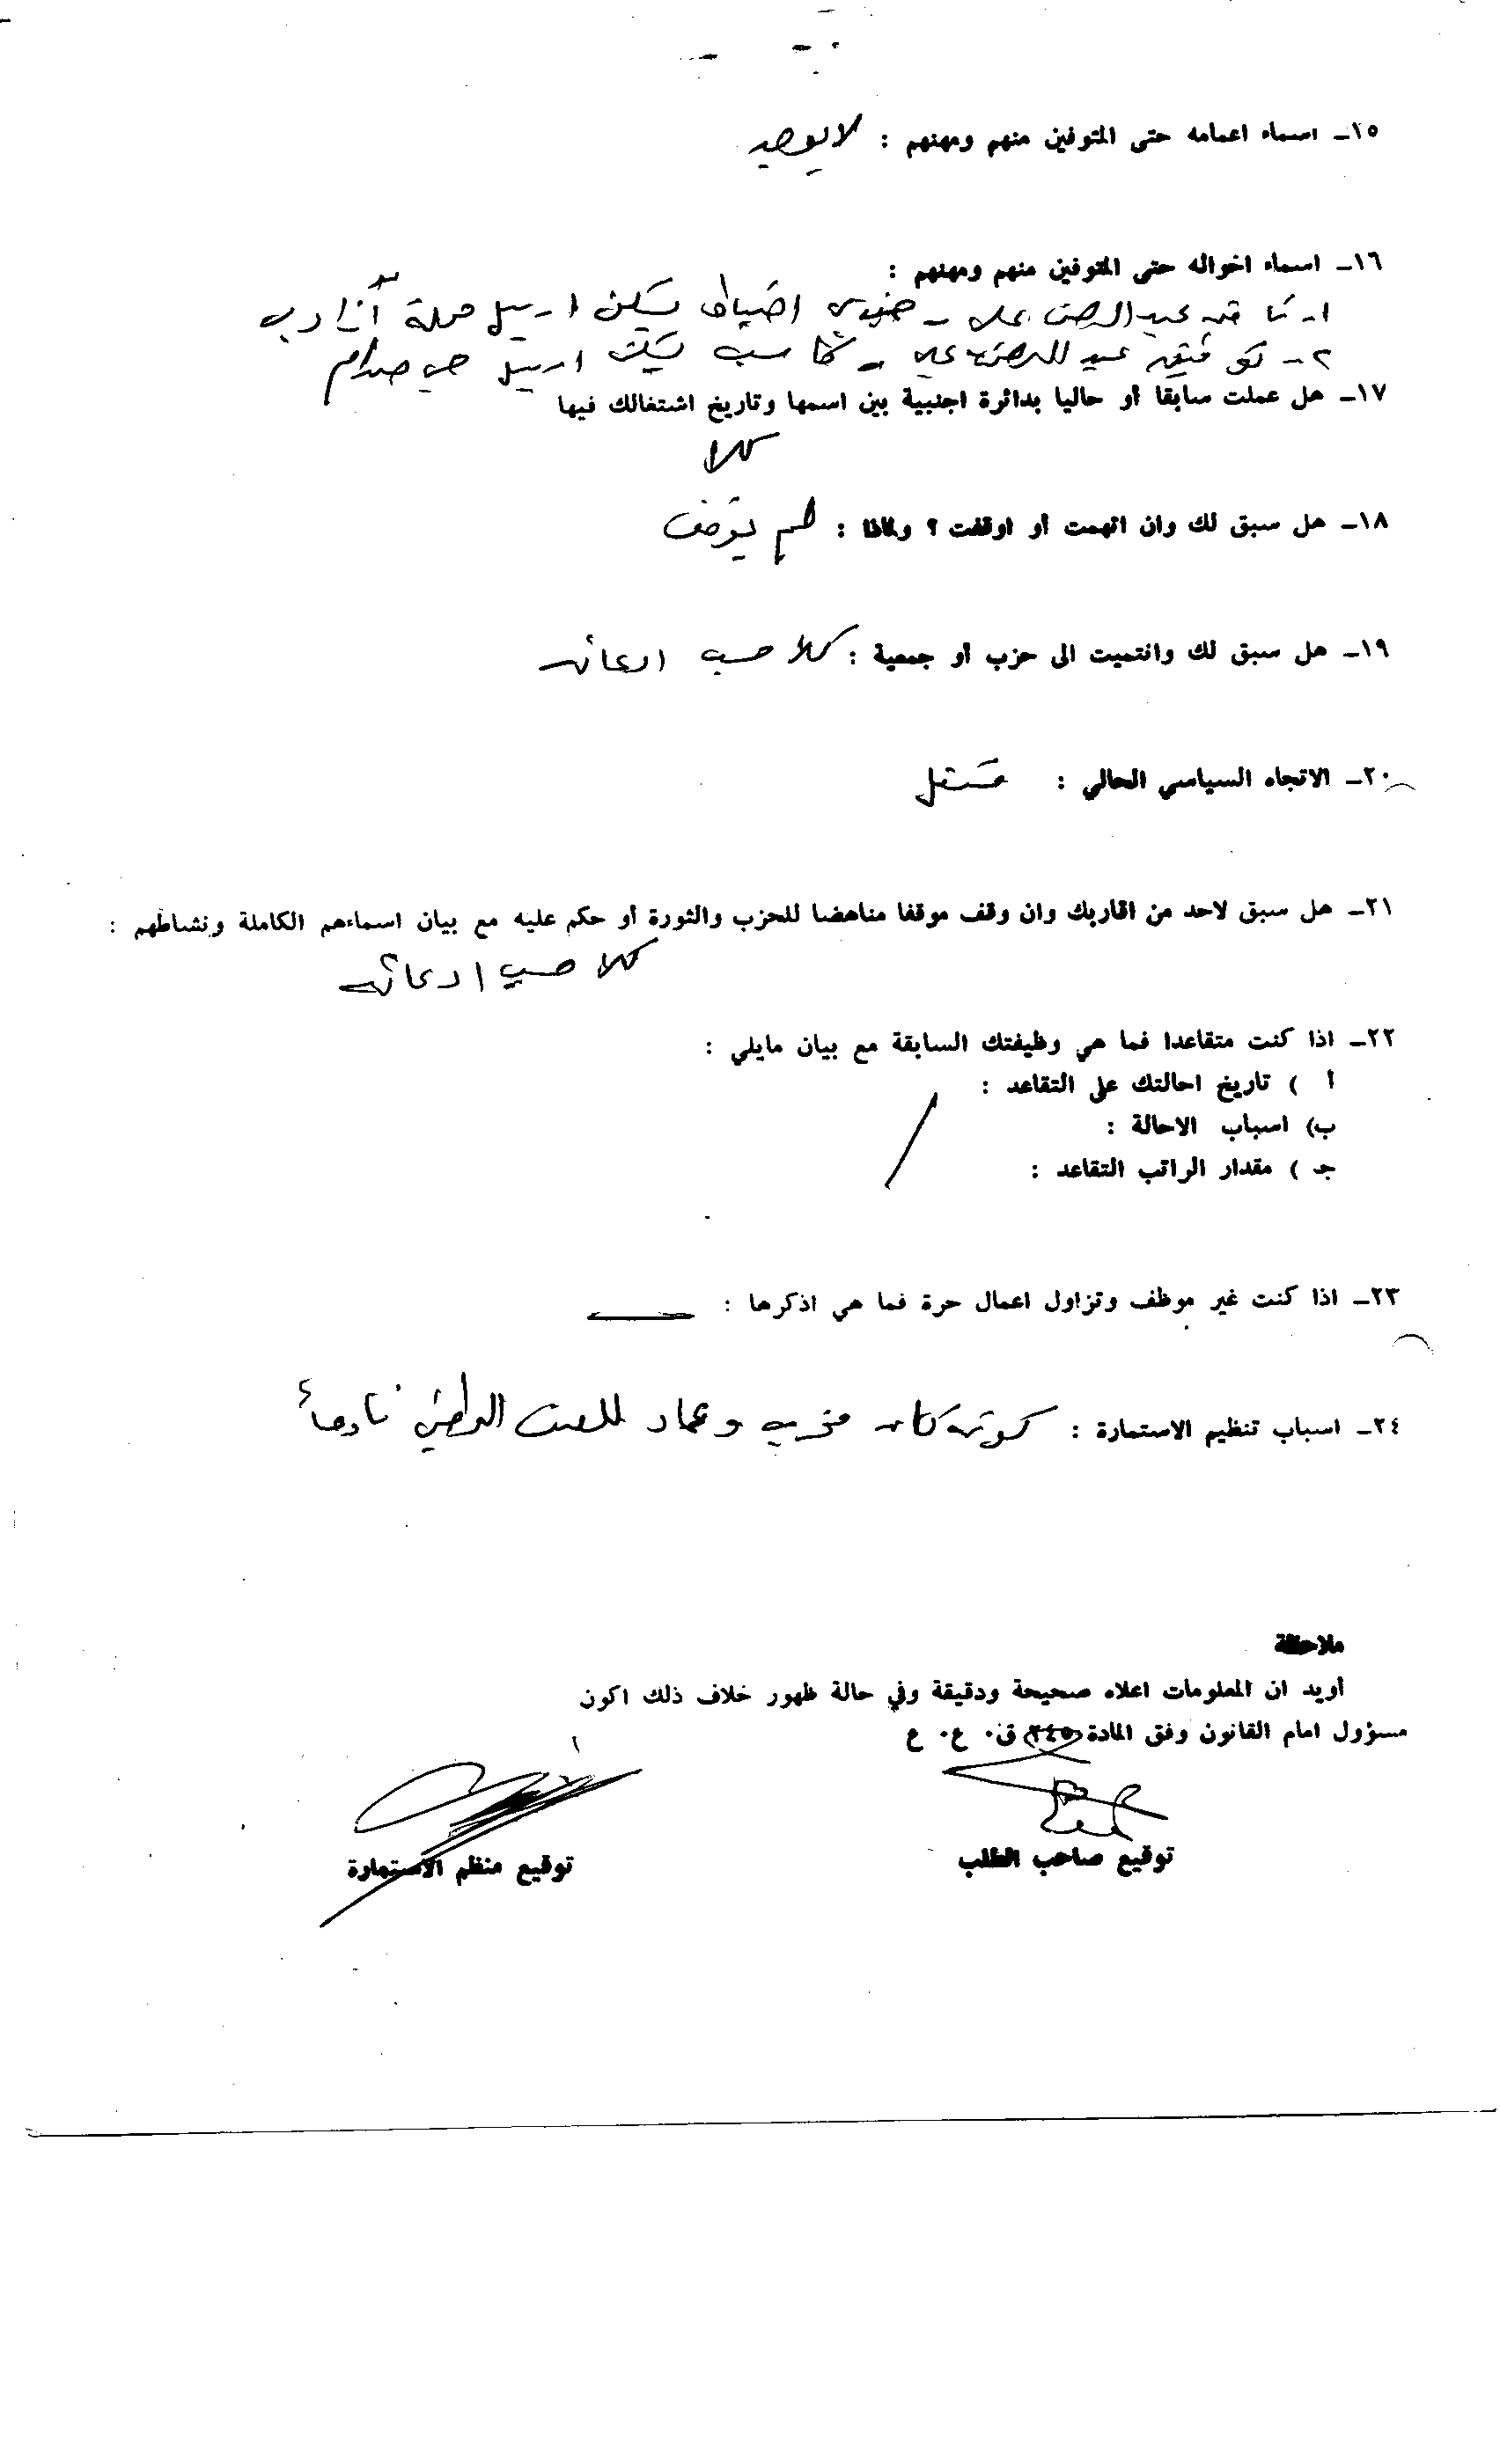 ١٥ـ اسماء اعمامه حتى المتوفين منهم ومهنهم : لا يوجد
١٦ـ اسماء اخواله حتى المتوفين منهم ومهنهم :
١ـ عبد الرحمن علي ـ جندي احتياط يسكن اربيل محلة آزادي
٢ـ توفيق عبد الرحمن علي ـ كاسب يسكن اربيل حي صدام
١٧ـ هل عملت سابقا أو حاليا بدائرة اجنبية بين اسمها وتاريخ اشتغالك فيها
كلا
١٨ـ هل سبق لك وان اتهمت أو اوقفت ؟ ولماذا : لم يوقف
١٩ـ هل سبق لك وانتميت الى حزب أو جمعية : كلا حسب ادعائه
٢٠ـ الاتجاه السياسي الحالي : مستقل
٢١ـ هل سبق لاحد من اقاربك وان وقف موقفا مناهضا للحزب والثورة أو حكم عليه مع بيان اسماءهم الكاملة ونشاطهم :
كلا حسب ادعائه
٢٢ـ اذا كنت متقاعدا فما هي وظيفتك السابقة مع بيان مايلي :
أ ) تاريخ احالتك على التقاعد :
ب) اسباب الاحالة :
جـ ) مقدار الراتب التقاعد :
٢٣ـ اذا كنت غير موظف وتزاول اعمال حرة فما هي اذكرها :
٢٤ـ اسباب تنظيم الاستمارة : كونه كان مخرب وعاد للصف الوطني نادماً
ملاحظة
أريد ان المعلومات اعلاه صحيحة ودقيقة وفي حالة ظهور خلاف ذلك اكون
مسؤول امام القانون وفق المادة (٢٤٥) ق٠ ع٠ ع
توقيع صاحب الطلب
توقيع منظم الاستمارة